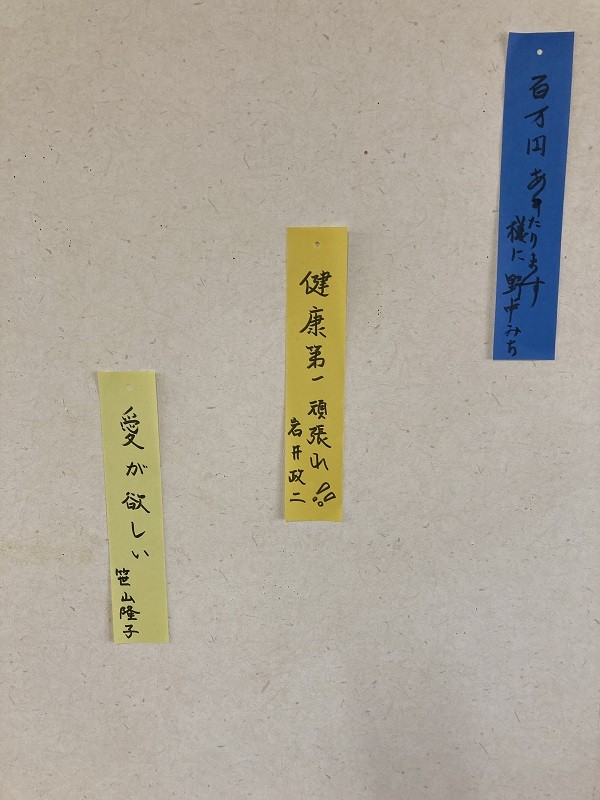 百万円あたります
様に 野中みち
健康第一 頑張れ!!
岩井政二
愛が欲しい
笹山隆子